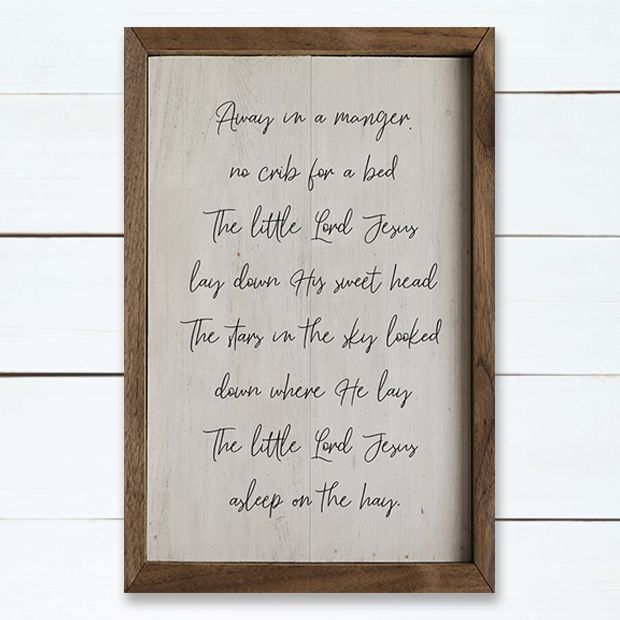 Away in a manger,
no crib for a bed
The little Lord Jesus
lay down His sweet head
The stars in the sky looked
down where He lay
The little Lord Jesus
asleep on the hay.